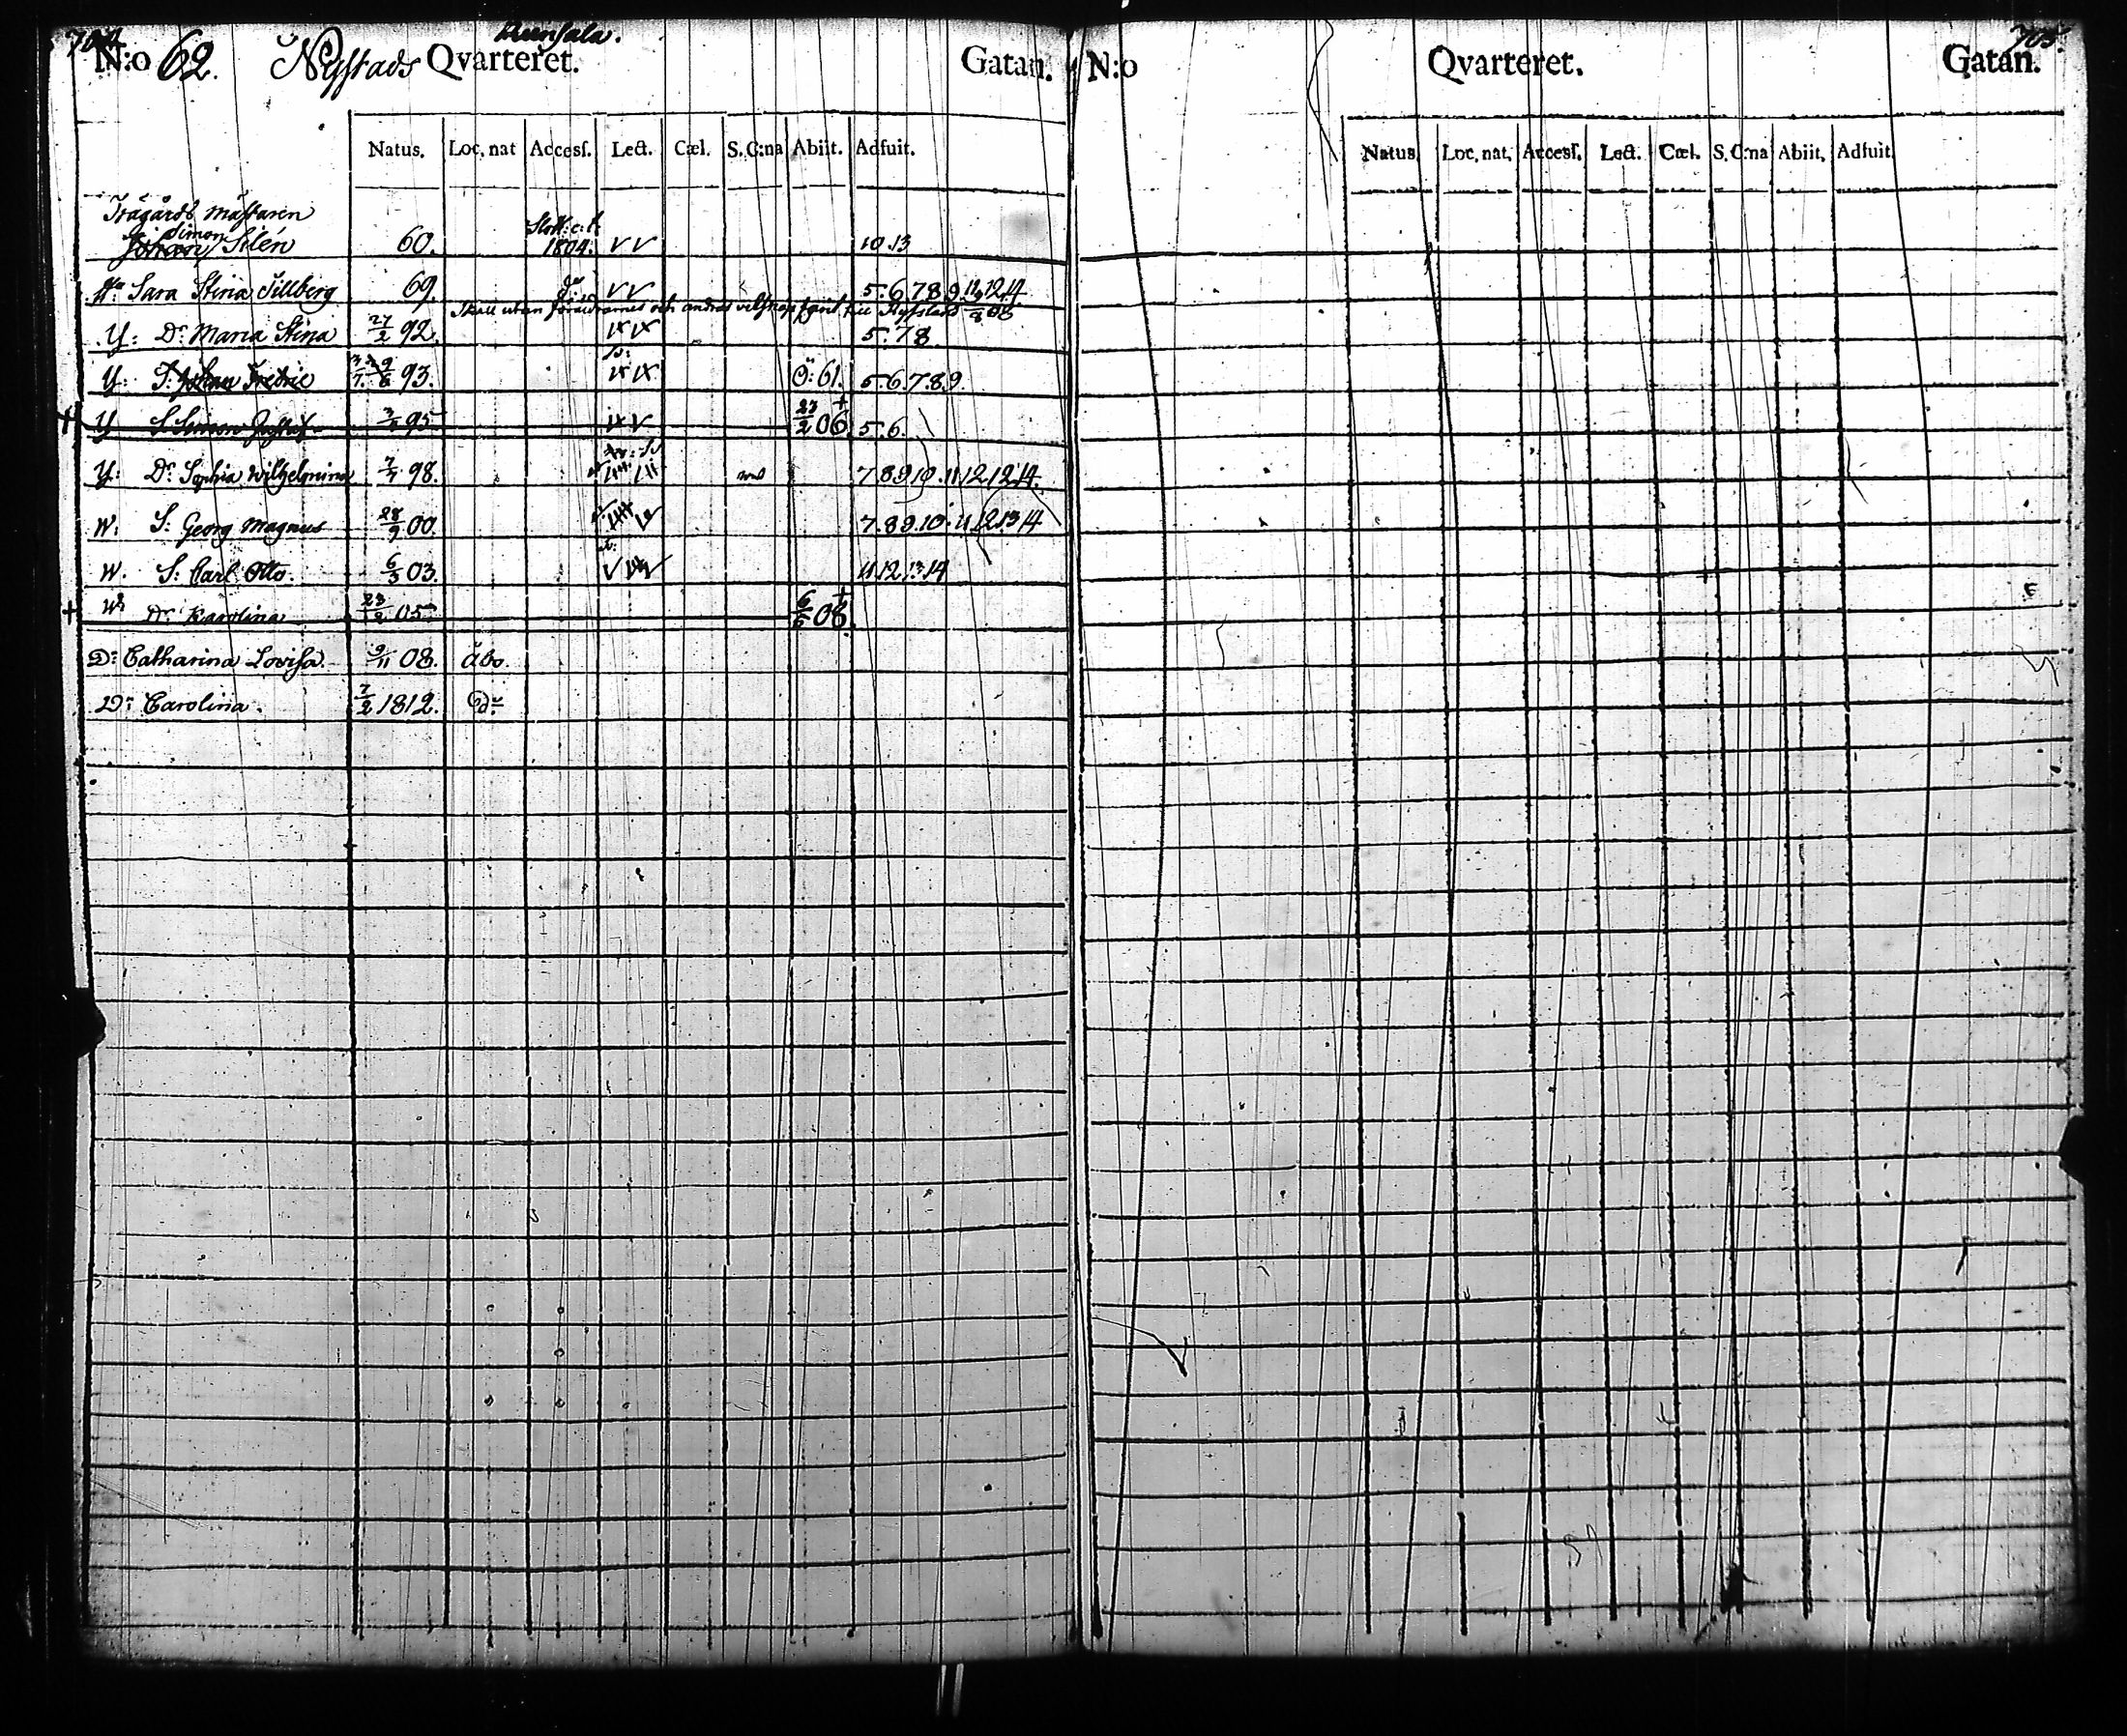 704
Runsala.
N:o 62. Nystads Qvarteret. Gatan.
Natus. Loc, nat Accesſ. Lect. Cæl. S. C:na Abiit. Adfuit.
Trägårds mästaren
Simon
Johan Silén 60. 1804. V V 10.13
Sara Stina Sillberg 69. Do V V 5.6.7.8.9.11.12.14
Skall utan föräldrarnes och andras vettskap farit till Nystad 08
Y: Dr Maria Stina 27/2 92. 5.78
Y. S: Johan Fredric 93. Ö:61. 5.6.7.8.9.
+ Y S Simon Gustaf 95 23/2 06 + 5.6.
Y: Dr Sophia Wilhelmina 7/7 98. 7.8.9.10.11.12.12.14.
W. S: Georg Magnus 28/9 00. 7.8.9.10.11.12.13.14
W. S: Carl Otto. 6/3 03. 11.12.13.14
+ W Dr Karolina 05 6/6 08. +
Dr Catharina Lovisa. 9/11 08. Åbo.
Dr Carolina. 7/2 1812. Do
705.
N:o Qvarteret. Gatan.
Natus. Loc, nat. Accesſ. Lect. Cæl. S. C:na Abiit. Adfuit.